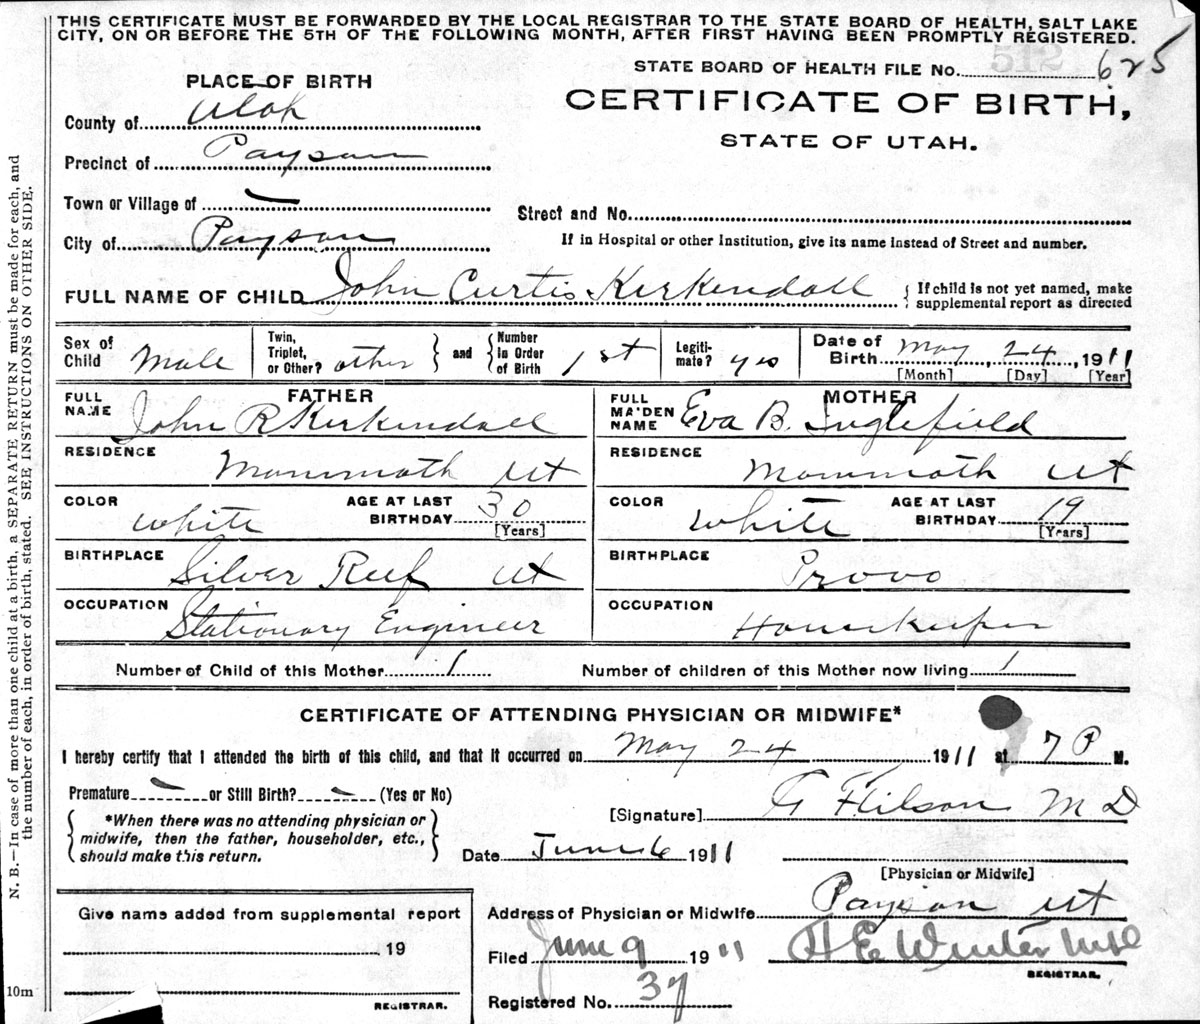 THIS CERTIFICATE MUST BE FORWARDED BY THE LOCAL REGISTRAR TO THE STATE BOARD OF HEALTH, SALT LAKE
CITY, ON OR BEFORE THE 5TH OF THE FOLLOWING MONTH, AFTER FIRST HAVING BEEN PROMPTLY REGISTERED.
512
STATE BOARD OF HEALTH FILE No. 625
PLACE OF BIRTH
CERTIFICATE OF BIRTH,
County of Utah
STATE OF UTAH.
Precinct of Payson
Town or Village of —
Street and No.
City of Payson
If in Hospital or other Institution, give its name instead of Street and number.
FULL NAME OF CHILD John Curtis Kirkendall { If child is not yet named, make
supplemental report as directed
Sex of Child Male Twin, Triplet, or Other? other } and { Number in Order of Birth 1st Legiti-mate? yes Date of Birth May, 24, 1911
[Month] [Day] [Year]
FATHER MOTHER
FULL NAME John R Kirkendall FULL MAIDEN NAME Eva B. Inglefield
RESIDENCE Mammoth Ut RESIDENCE Mammoth Ut
COLOR white AGE AT LAST BIRTHDAY 30 [Years] COLOR White AGE AT LAST BIRTHDAY 19 [Years]
BIRTHPLACE Silver Reef Ut BIRTHPLACE Provo
OCCUPATION Stationary Engineer OCCUPATION Housekeeper
Number of Child of this Mother 1 Number of children of this Mother now living 1
CERTIFICATE OF ATTENDING PHYSICIAN OR MIDWIFE*
I hereby certify that I attended the birth of this child, and that it occurred on May 24 1911 at 7 P M.
Premature — or Still Birth? — (Yes or No)
[Signature] M D
{ *When there was no attending physician or
midwife, then the father, householder, etc.,
should make this return. }
Date June 6 1911
[Physician or Midwife]
Give name added from supplemental report
Address of Physician or Midwife Payson Ut
19
Filed June 9 1911 H E Winter
REGISTRAR.
10m
REGISTRAR.
Registered No. 37
N. B.—In case of more than one child at a birth, a SEPARATE RETURN must be made for each, and
the number of each, in order of birth, stated. SEE INSTRUCTIONS ON OTHER SIDE.